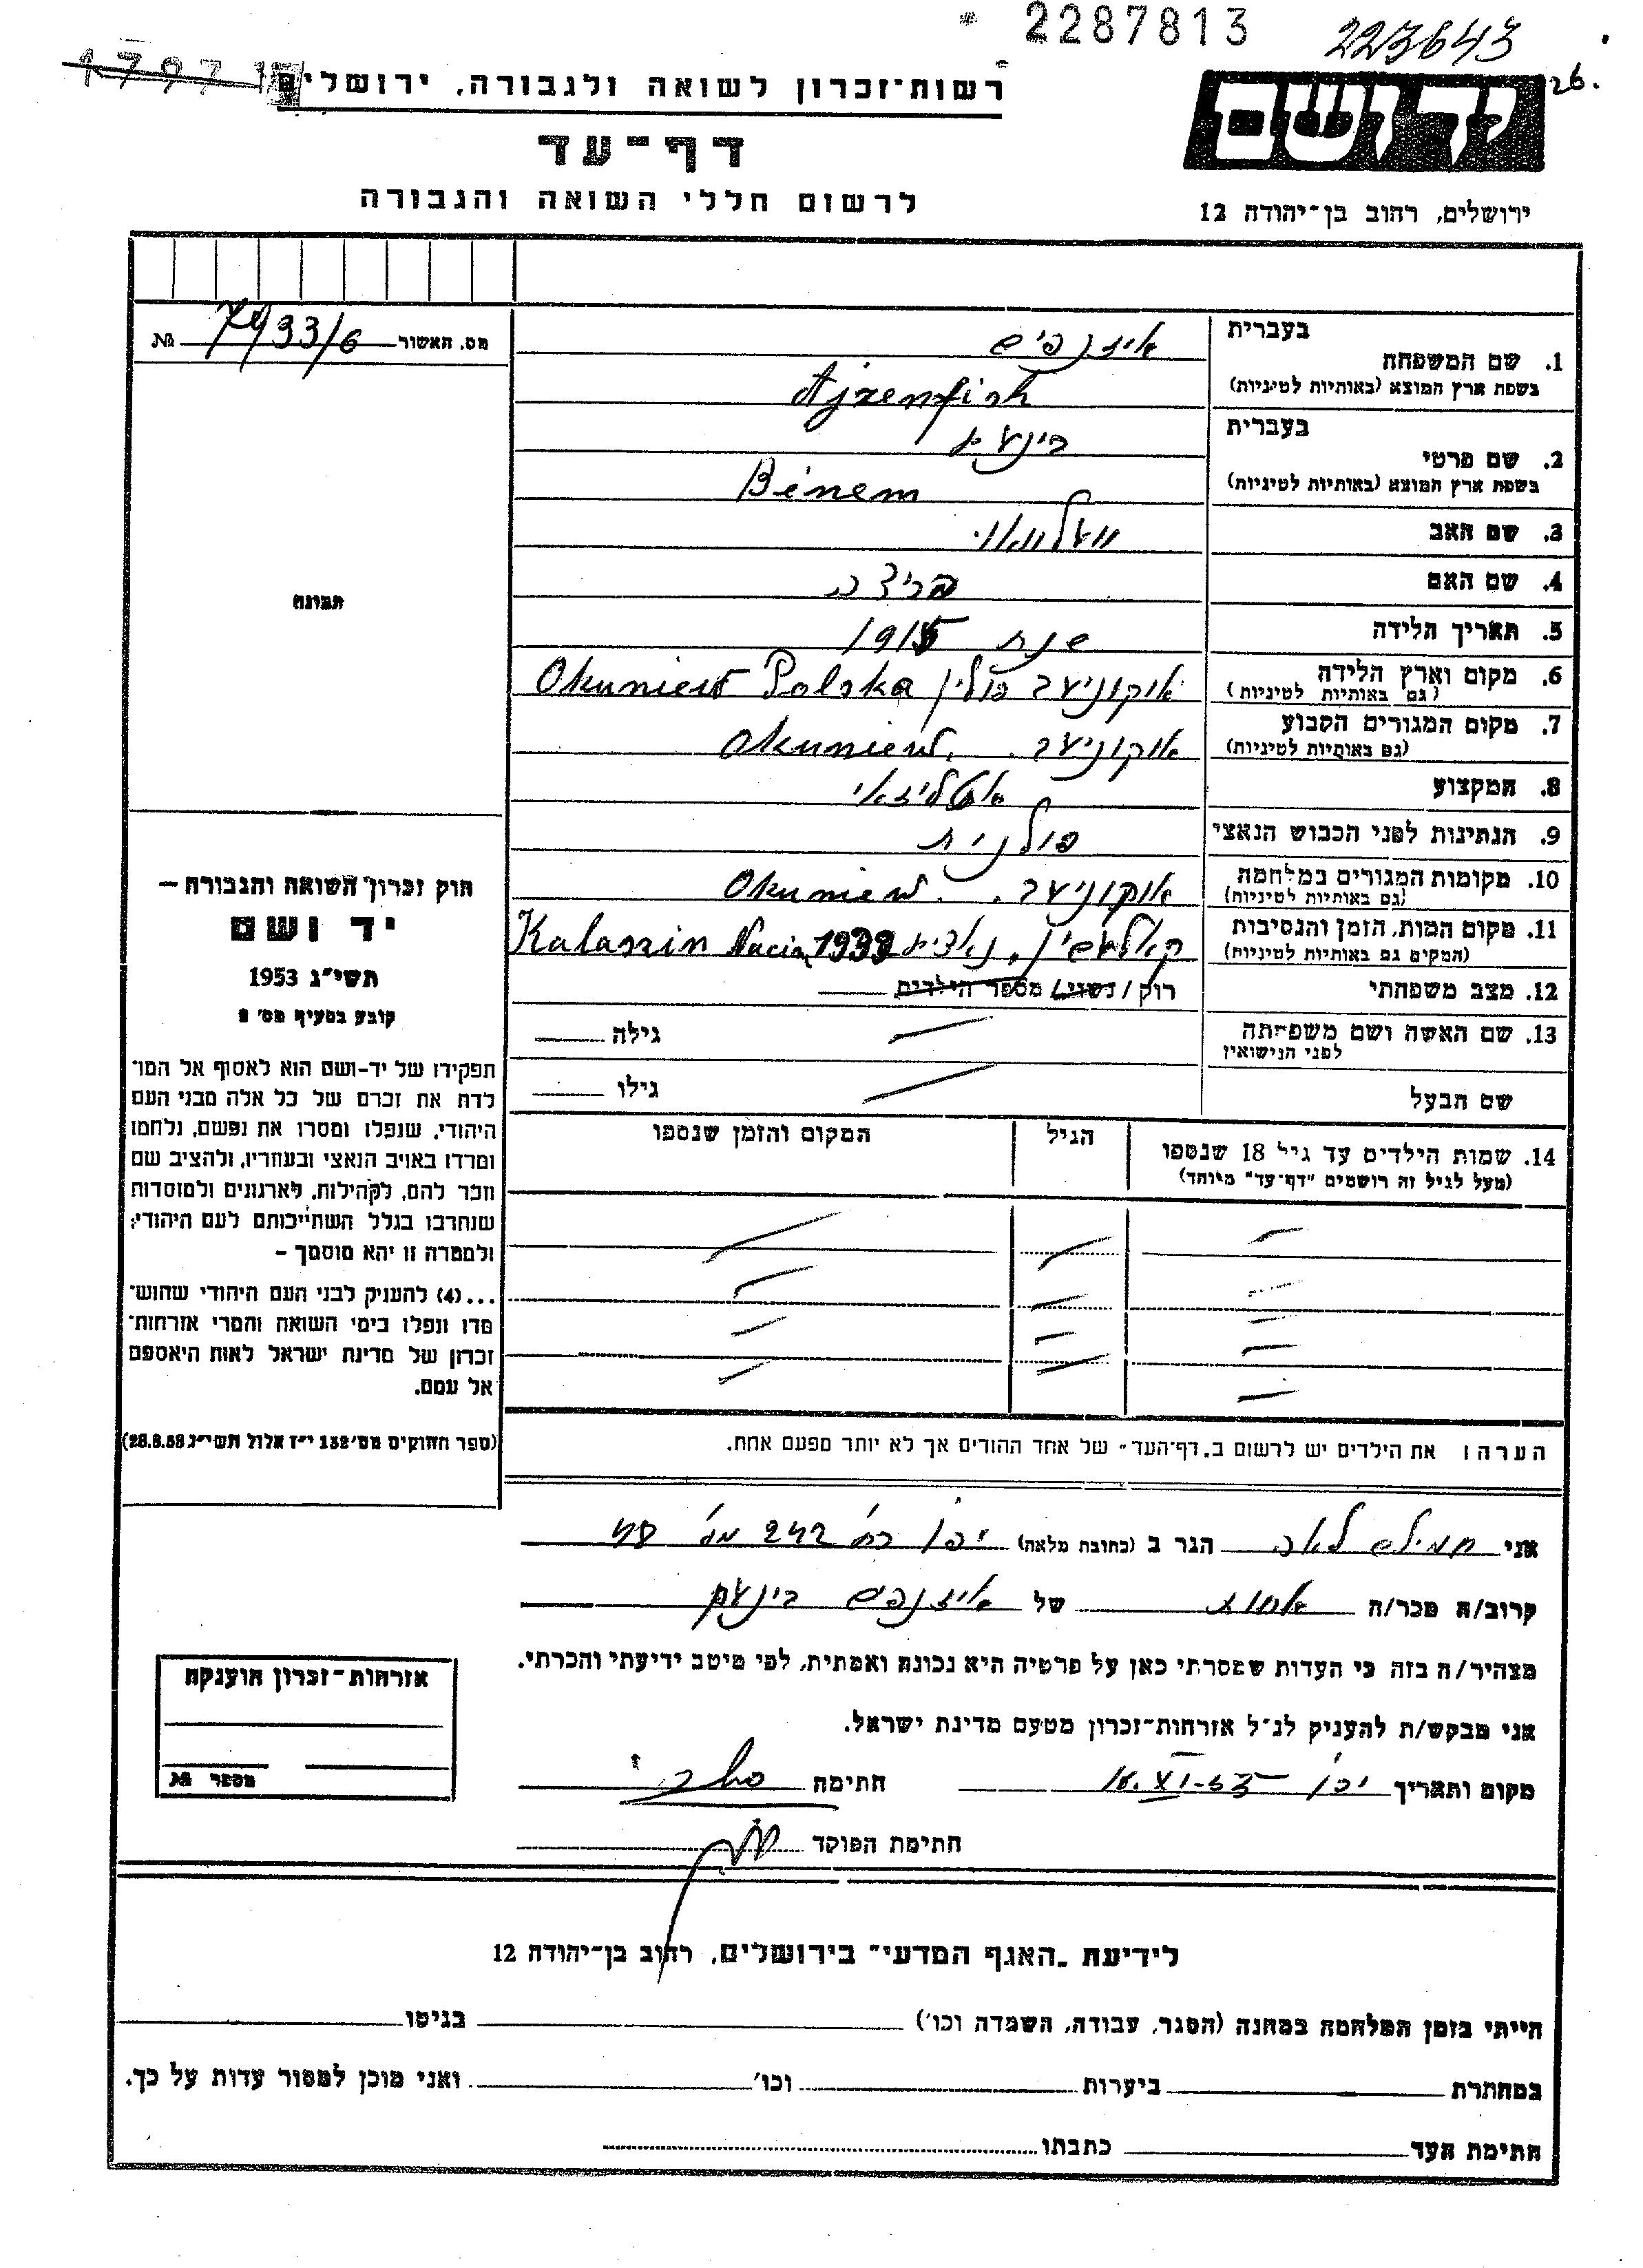 2287813
223643
26.
רשות־זכרון לשואה ולגבורה, ירושלים
יד ושם
דף־עד
לרשום חללי השואה והגבורה
ירושלים, רחוב בן־יהודה 12
מס. האשור 33/6 №
בעברית איזנפיש
1. שם המשפחה
בשפת ארץ המוצא (באותיות לטיניות) Ajzenfish
בעברית בינעם
2. שם פרטי
בשפת ארץ המוצא (באותיות לטיניות) Binem
3. שם האב
4. שם האם
5. תאריך הלידה שנת 1915
6. מקום וארץ הלידה אוקוניעב פולין Okuniew Polska
(גם באותיות לטיניות)
7. מקום המגורים הקבוע אוקוניעב. Okuniew
(גם באותיות לטיניות)
8. המקצוע
9. הנתינות לפני הכבוש הנאצי פולנית
10. מקומות המגורים במלחמה אוקוניעב. Okuniew
(גם באותיות לטיניות)
11. מקום המות, הזמן והנסיבות קאלושין, Kaluszin 1939
(המקום גם באותיות לטיניות)
12. מצב משפחתי רווק / נשוי / מספר הילדים
13. שם האשה ושם משפחתה גילה
לפני הנישואין
שם הבעל גילו
14. שמות הילדים עד גיל 18 שנספו הגיל המקום והזמן שנספו
(מעל לגיל זה רושמים "דף־עד" מיוחד)
הערה: את הילדים יש לרשום ב„דף־העד" של אחד ההורים אך לא יותר מפעם אחת.
תמונה
חוק זכרון השואה והגבורה —
יד ושם
תשי"ג 1953
קובע בסעיף מס' 2
תפקידו של יד־ושם הוא לאסוף אל המו־
לדת את זכרם של כל אלה מבני העם
היהודי, שנפלו ומסרו את נפשם, נלחמו
ומרדו באויב הנאצי ובעוזריו, ולהציב שם
וזכר להם, לקהילות, לארגונים ולמוסדות
שנחרבו בגלל השתייכותם לעם היהודי;
ולמטרה זו יהא מוסמך —
...(4) להעניק לבני העם היהודי שהוש־
מדו ונפלו בימי השואה והמרי אזרחות־
זכרון של מדינת ישראל לאות היאספם
אל עמם.
(ספר החוקים מס' 132 י"ז אלול תשי"ג 28.8.53)
אני לאה הגר ב (כתובת מלאה) יפו רח' 242 מס'
קרוב/ה מכר/ה אחות של איזנפיש בינעם
מצהיר/ה בזה כי העדות שמסרתי כאן על פרטיה היא נכונה ואמתית, לפי מיטב ידיעתי והכרתי.
אני מבקש/ת להעניק לנ"ל אזרחות־זכרון מטעם מדינת ישראל.
מקום ותאריך יפו חתימה
חתימת הפוקד
אזרחות־זכרון הוענקה
מספר №
לידיעת „האגף המדעי" בירושלים, רחוב בן־יהודה 12
הייתי בזמן המלחמה במחנה (הסגר, עבודה, השמדה וכו') בגיטו
במחתרת ביערות וכו' ואני מוכן למסור עדות על כך.
חתימת העד כתבתו